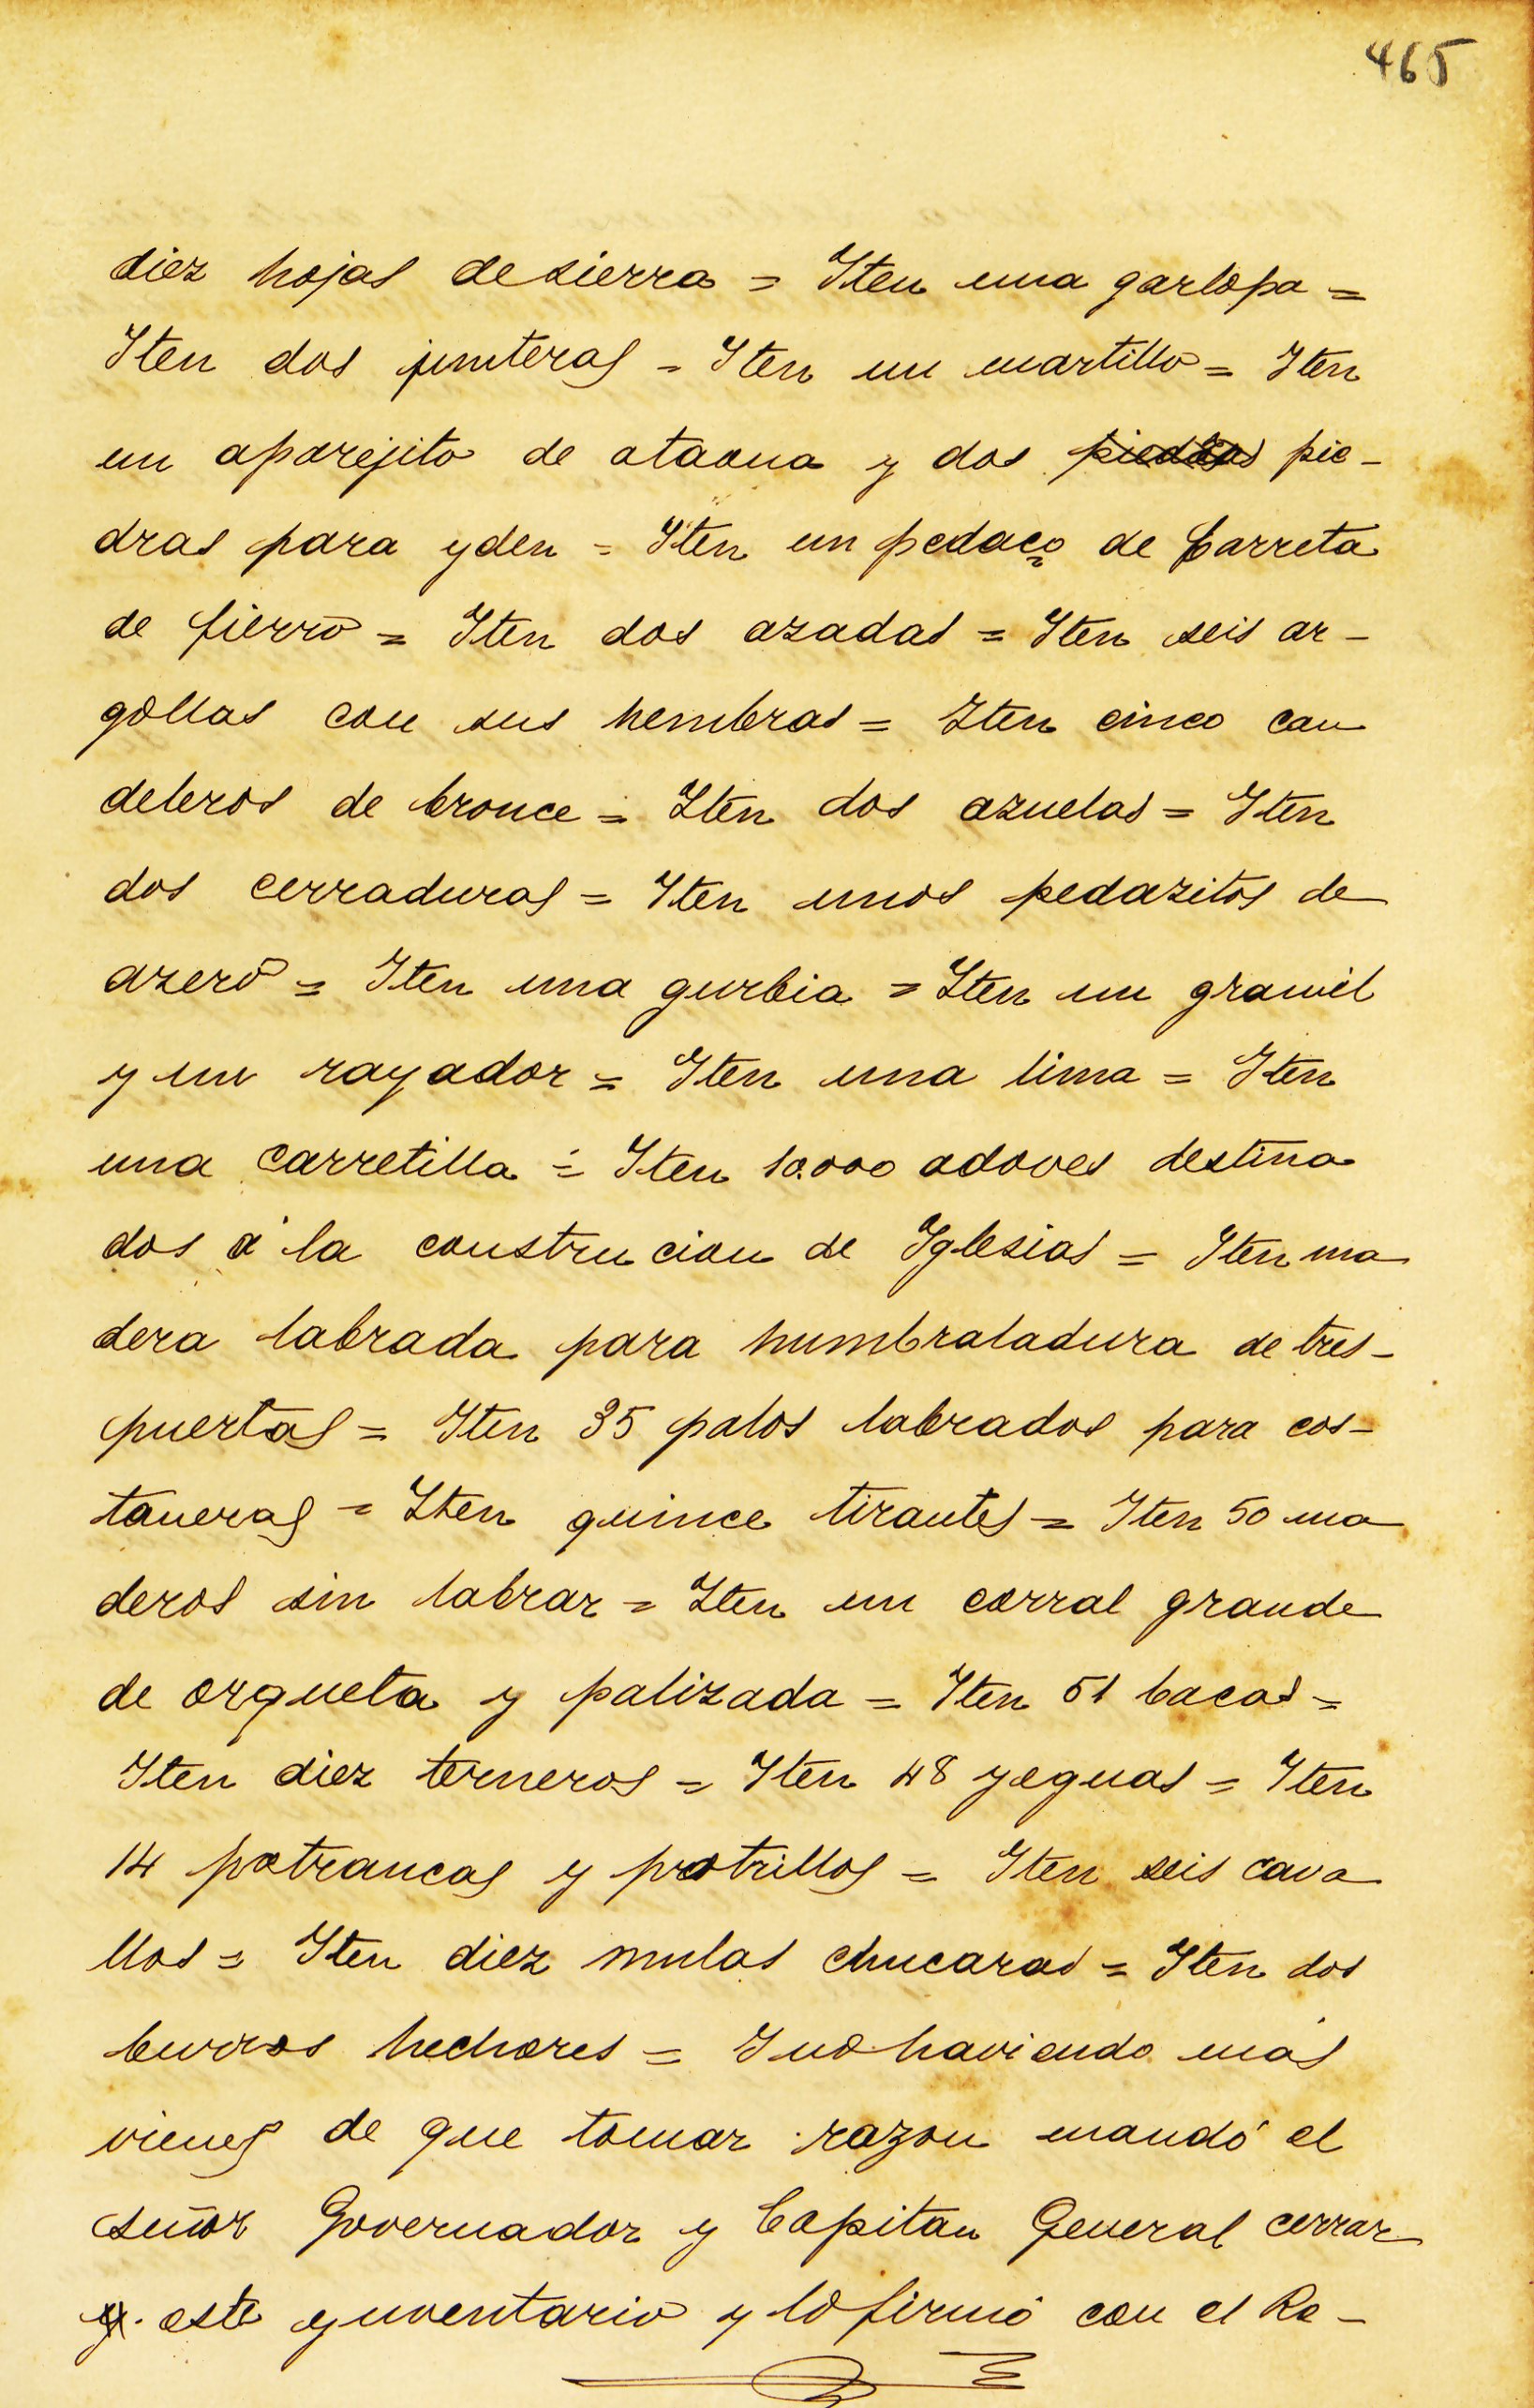 465
diez hojas de sierra = Iten una garlopa =
Iten dos junteras = Iten un martillo = Iten
un aparejito de ataona y dos piedras pie-
dras para yden = Iten un pedaco de barreta
de fierro = Iten dos azadas = Iten seis ar-
gollas con sus hembras = Iten cinco can
deleros de bronce = Iten dos azuelas = Iten
dos cerraduras = Iten unos pedazitos de
azero = Iten una gurbia = Iten un gramil
y un rayador = Iten una lima = Iten
una carretilla = Iten 10.000 adoves destina
dos á la construcion de Iglesias = Iten ma
dera labrada para humbraladura de tres-
puertas = Iten 35 palos labrados para cos-
taneras = Iten quince tirantes = Iten 50 ma
deros sin labrar = Iten un corral grande
de orqueta y palizada = Iten 51 bacas =
Iten diez terneros = Iten 48 yeguas = Iten
14 potrancas y potrillos = Iten seis cava
llos = Iten diez mulas chucaras = Iten dos
burros hechores = I no haviendo más
vienes de que tomar razon mandó el
señor Governador y Capitan General cerrar
este ynventario y lo firmó con el Re-